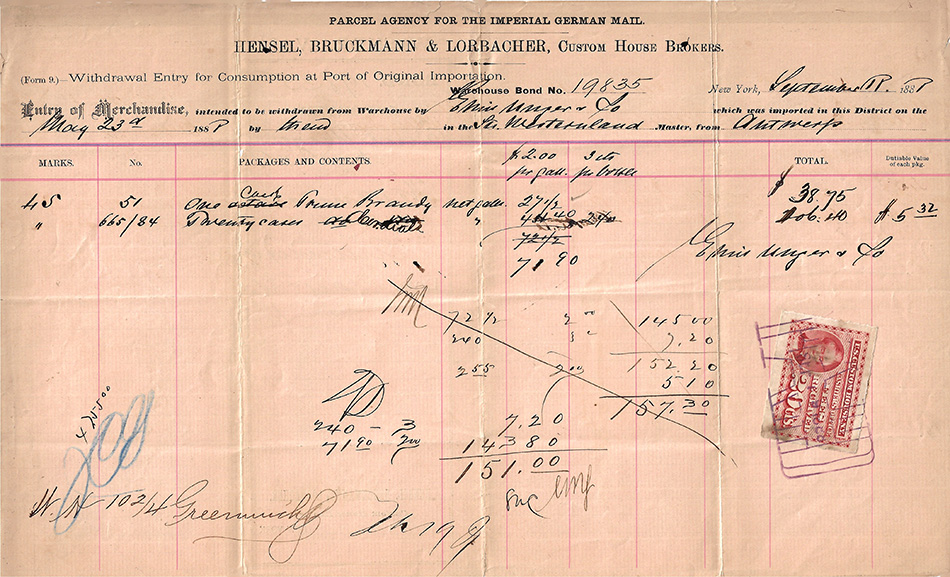 PARCEL AGENCY FOR THE IMPERIAL GERMAN MAIL.
HENSEL, BRUCKMANN & LORBACHER, CUSTOM HOUSE BROKERS.
(Form 9.)—Withdrawal Entry for Consumption at Port of Original Importation.
Warehouse Bond No. 19835 New York, September 1888
Entry of Merchandise, intended to be withdrawn from Warehouse by Emil Unger & Co which was imported in this District on the
May 23rd 1888 by them in the Ss. Westernland Master, from Antwerp
MARKS. No. PACKAGES AND CONTENTS. $2.00 pr gall. 3 cts pr bottle TOTAL. Dutiable Value of each pkg.
45 51 One Cask Prune Brandy net galls. 27 1/2 $ 38.75
" 665/84 Twenty cases " 44.40 106.40 $ 5 32
72 1/2
71 90
Emil Unger & Co
72 1/2 2 00 145 00
240 3 " 7.20
152.20
2 55 2 00 5 10
157.30
240 - 3 7.20
71 90 2 00 143 80
151.00
475500
W. H 102/4 Greenwich